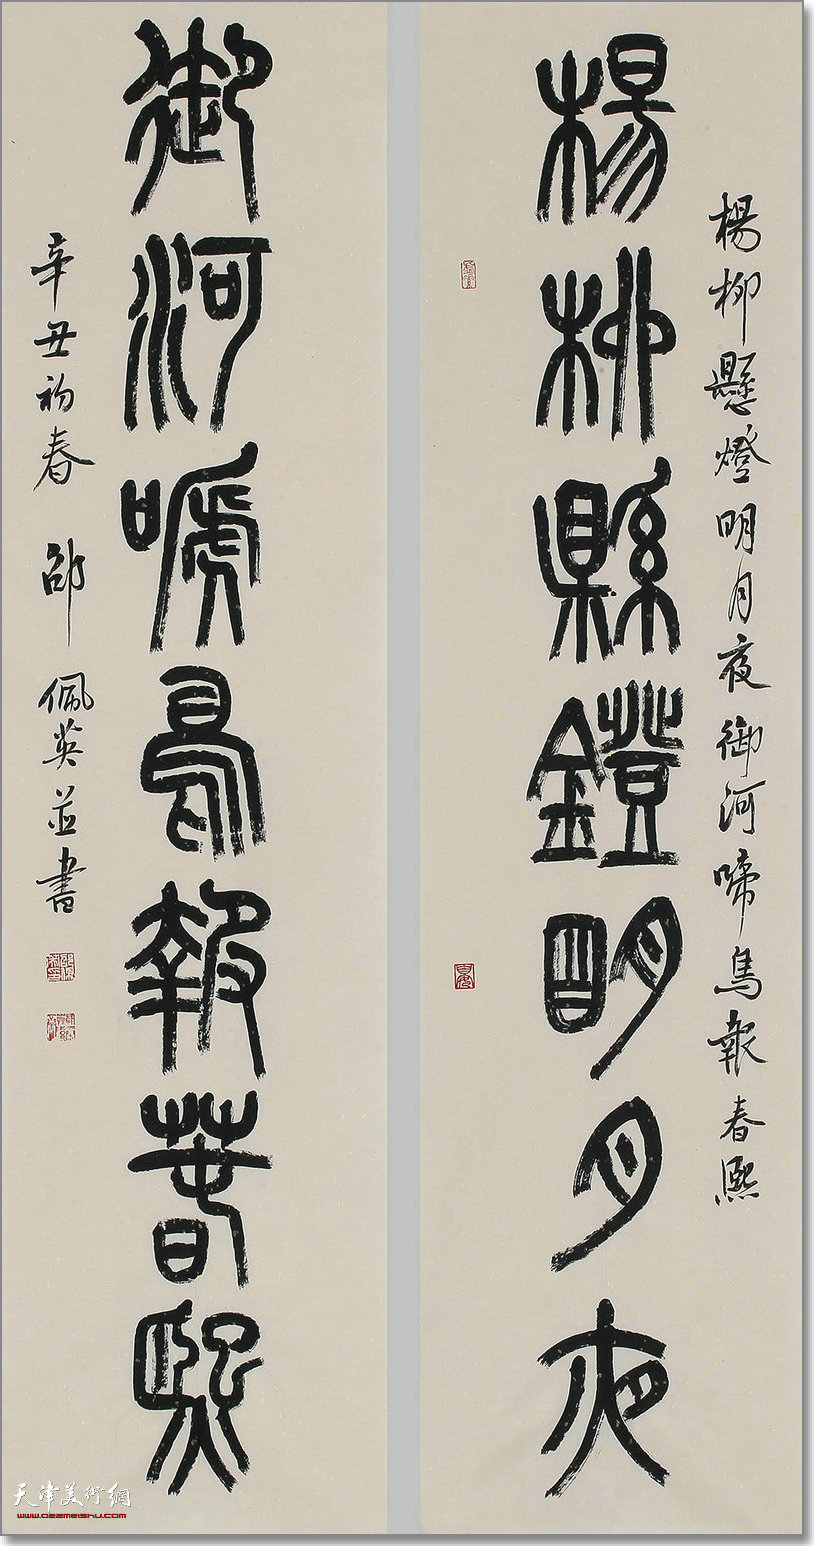 楊柳懸燈明月夜御河啼鳥報春熙
楊柳縣鐙明月夜
御河嗁鳥報萅熙
辛丑初春 邵佩英並書
天津美術網
www.022meishu.com